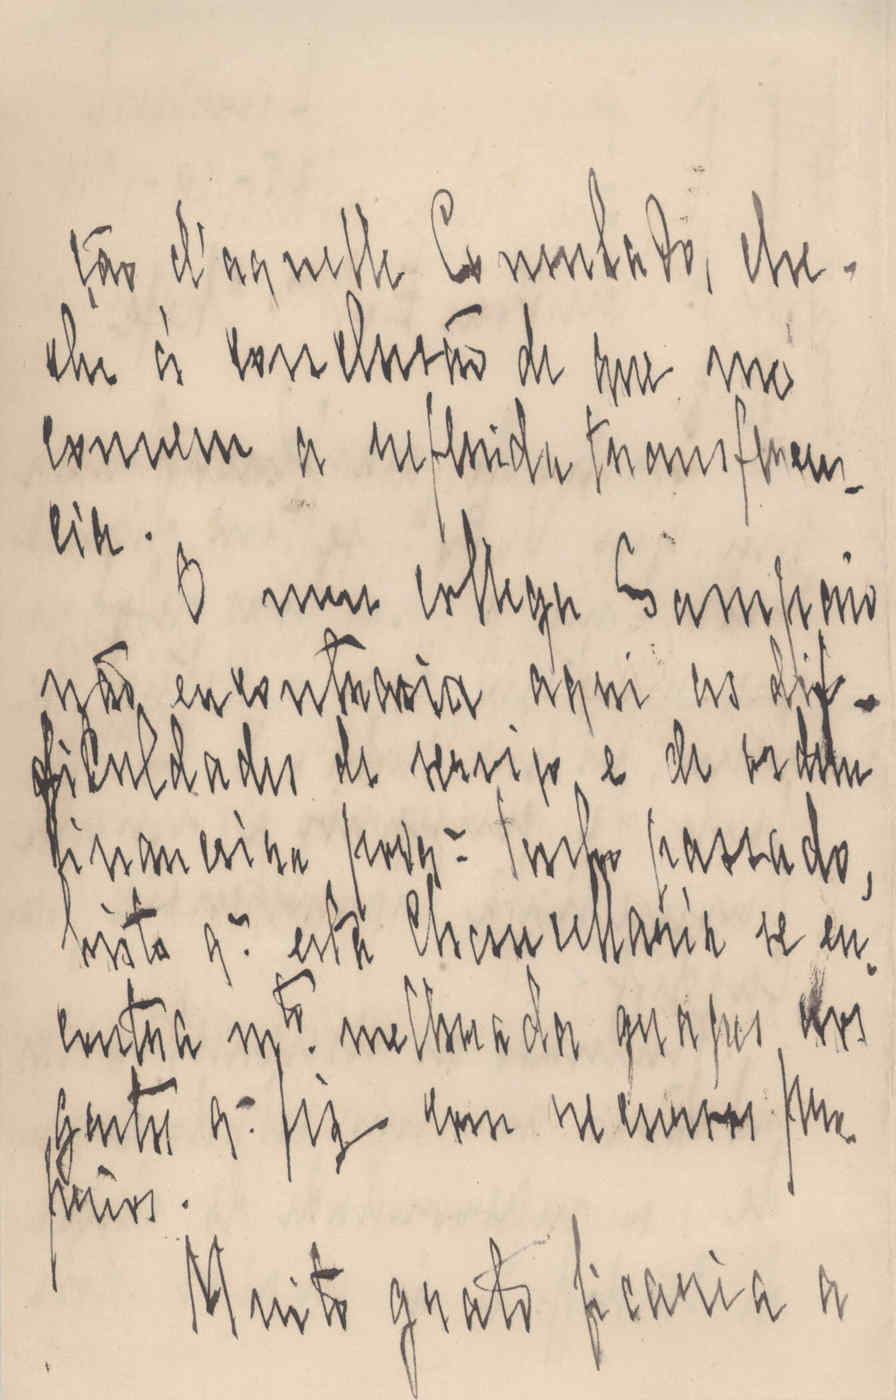 ção d'aquelle Consulado, che-
che á conclusão de que me
convem a referida transferen-
cia.
O meu collega Sampaio
não encontraria aqui as dif-
ficuldades de serviço e de ordem
financeira porq~ tenho passado,
visto q~. esta Chancellaria se en-
contra mto. melhorada graças aos
gastos q~. fiz com recursos pro-
prios.
Muito grato ficaria a